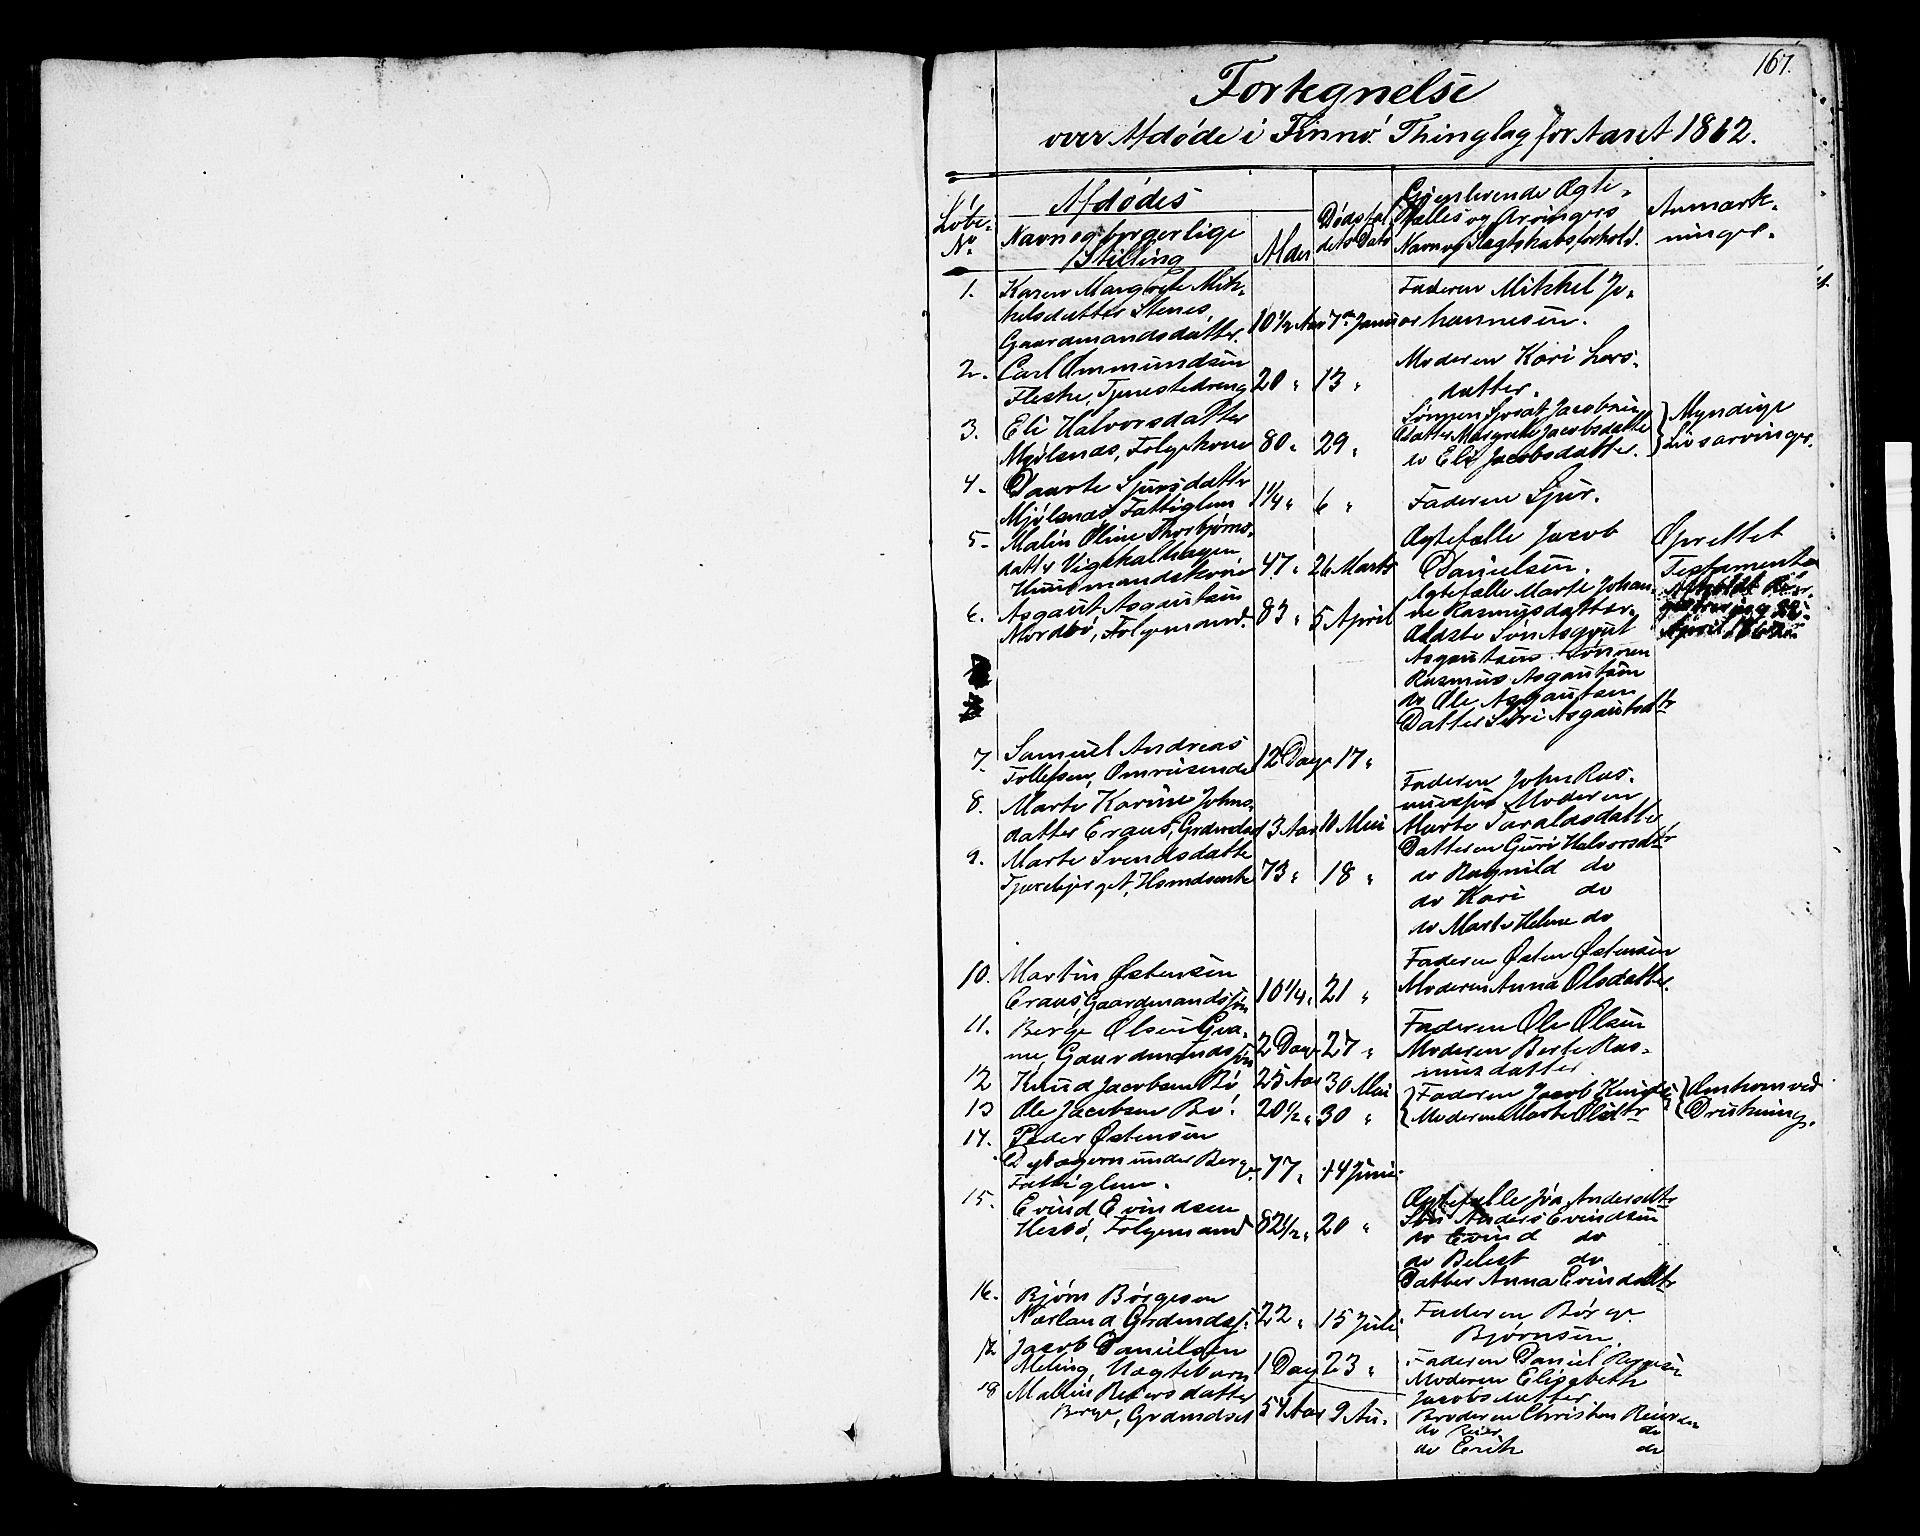 167.
Fortegnelse
over Afdøde i Finnø Thinglag for Aaret 1862.
Løbe- No
Afdødes
Navn og borgerlige Stilling
Alder
Dødsfal dets Dato
Gjenlevende Ægte- fælles og Arvingers Navn og Slægtskabsforhold.
Anmærk- ninger.
1. Karen Margrete Mik- 
kelsdatter Stenes, 
Gaardmandsdatter. 10 1/2 Aar 7de Januar
Faderen Mikkel Jo-
hannesen.
2. Carl Ommundsen
Fleske, Tjenestedreng 20 " 13 "
Moderen Kari Lars-
datter.
3. Eli Halvorsdatter
Mjølsnes, Folgekone 80 " 29 "
Sønnen Sjvat Jacobsen
Datter Margrete Jacobsdatter
do Eli Jacobsdatter.
Myndige
Livsarvinger.
4. Daarte Sjursdatter
Mjølsnes, Fattiglem 1 1/4 " 6 "
Faderen Sjur.
5. Malin Oline Thorbjørns-
datter Vignskalhagen,
Huusmandskone 47 " 26 Marts
Ægtefælle Jacob
Danielsen.
Oprettet
Testamente
6. Asgaut Asgautsen
Nordbø, Folgemand. 83 " 5 April
Ægtefælle Marte Johan-
ne Rasmusdatter.
Ældste Søn Asgaut
Asgautsen. Sønnen
Rasmus Asgautsen
do Ole Asgautsen
Datter Siri Asgautsdtr
April
7. Samuel Andreas
Tollefsen, Omreisende 12 Dage 17 "
8. Marte Karine Johns-
datter Eraas, Grdmdat 13 Aar 10 Mai
Faderen John Ras-
mussen Moderen
Marte Taraldsdatter
9. Marte Svendsdatter
Tjærebjerget, Hsmdsenke 73 " 18 "
Datteren Guri Halvorsdtr
do Ragnild do
do Kari do
do Marte Helene do
10. Martin Østensen
Eraas, Gaardmandssøn 10 1/4 " 21 "
Faderen Østen Østensen
Moderen Anna Olsdatter.
11. Berge Olsen Gva-
me, Gaardmandssøn 2 Dage 27 "
Faderen Ole Olsen
Moderen Berte Ras-
musdatter.
12 Knud Jacobsen Bø 25 Aar 30 Mai
13 Ole Jacobsen Bø. 20 1/2 " 30 "
Faderen Jacob Knudsen
Moderen Marte Olsdtr
Omkom ved
Drukning.
14. Peder Østensen
under Berge
Fattiglem. 77 " 4 Juni
15. Evind Evindsen
Hesbø, Folgemand 82 1/2 " 20 "
Ægtefælle Andersdtr
Søn Anders Evindsen
do Evind do
do Belest do
Datter Anna Evindsdtr
16. Bjørn Børgesen
Nærland, Grdmdss. 22 " 15 Juli
Faderen Børge
Bjørnsen.
17 Jacob Danielsen
Meling, Uægtebarn 1 Dag 23 "
Faderen Daniel
Moderen Elisabeth
Jacobsdatter
18 Mallin Reiersdatter
Berge, Grdmdsd 54 Aar 9 Au.
Broderen Christen Reiersen
do Reier do
do Erik do